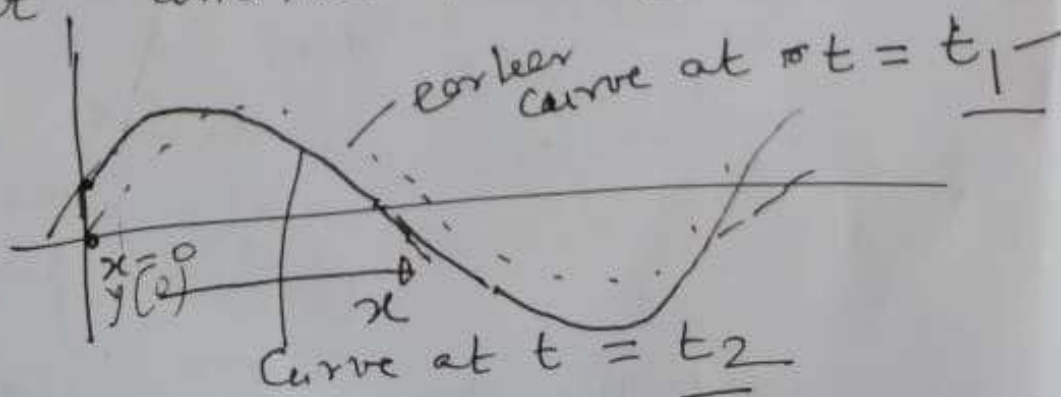 earlier
curve at t = t1
x = 0
y(0)
x
Curve at t = t2